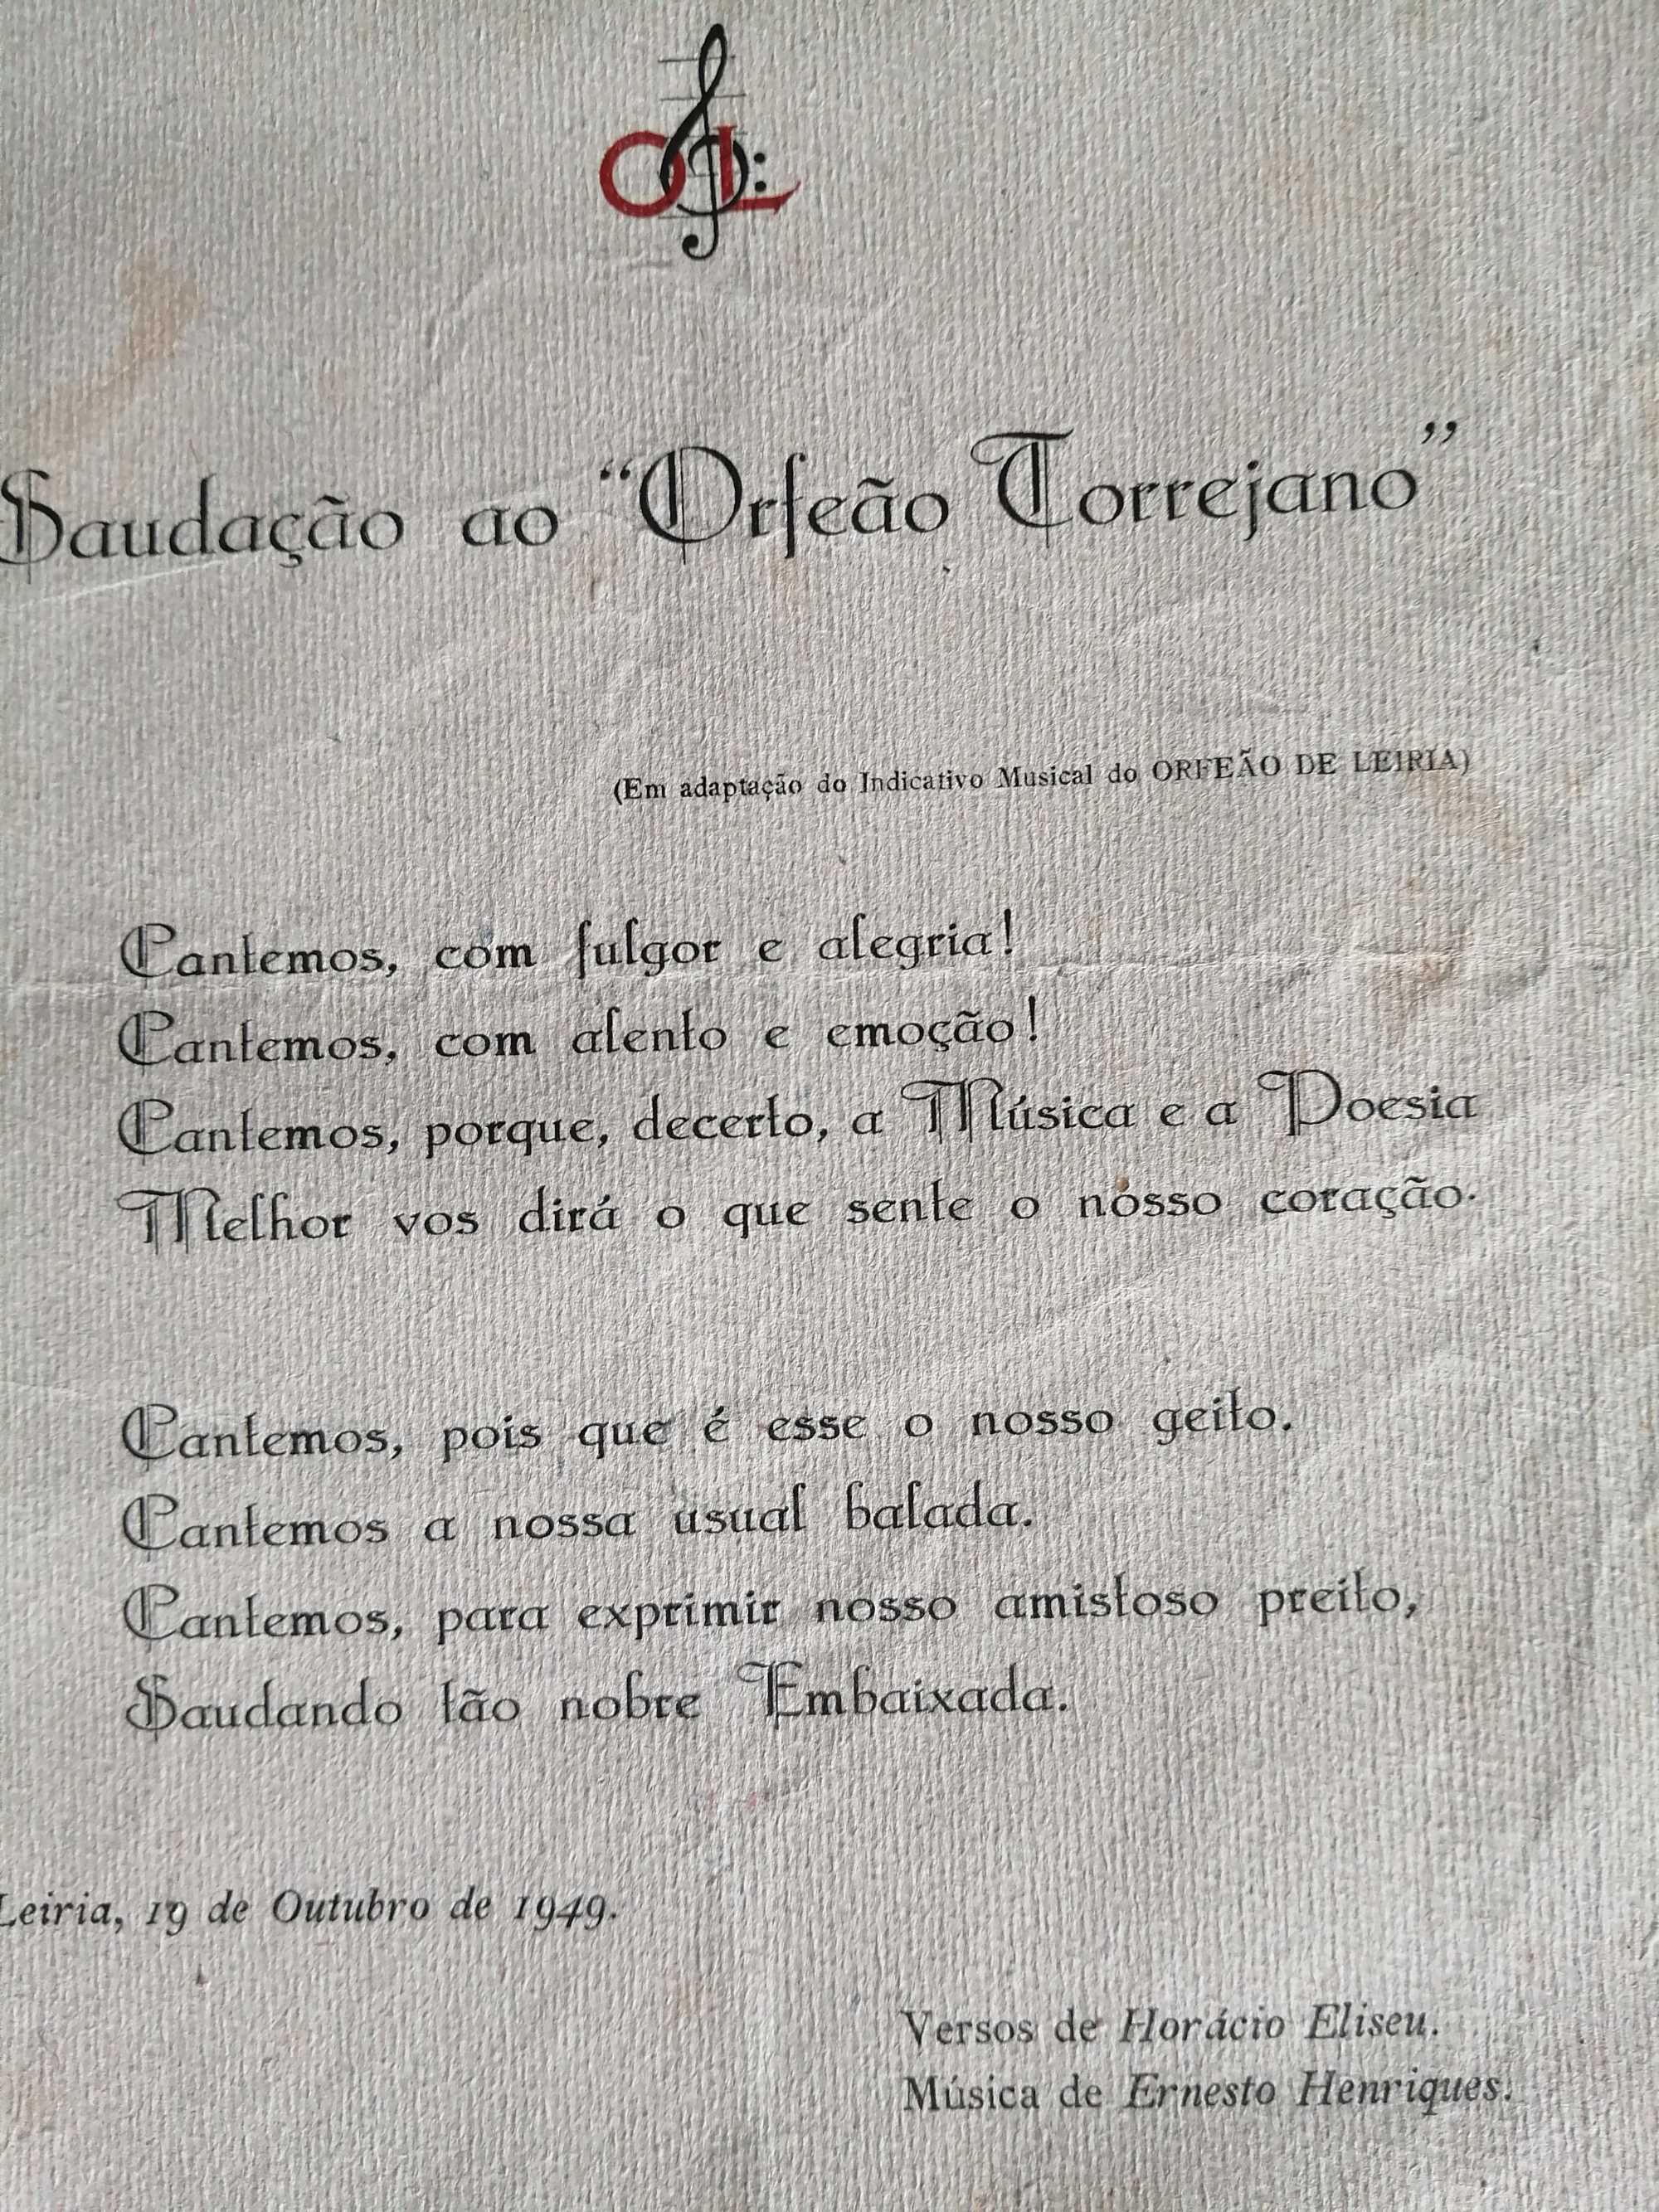 OL
Saudação ao “Orfeão Torrejano”
(Em adaptação do Indicativo Musical do ORFEÃO DE LEIRIA)
Cantemos, com fulgor e alegria!
Cantemos, com alento e emoção!
Cantemos, porque, decerto, a Música e a Poesia
Melhor vos dirá o que sente o nosso coração.
Cantemos, pois que é esse o nosso geito.
Cantemos a nossa usual balada.
Cantemos, para exprimir nosso amistoso preito,
Saudando tão nobre Embaixada.
Leiria, 19 de Outubro de 1949.
Versos de Horácio Eliseu.
Música de Ernesto Henriques.